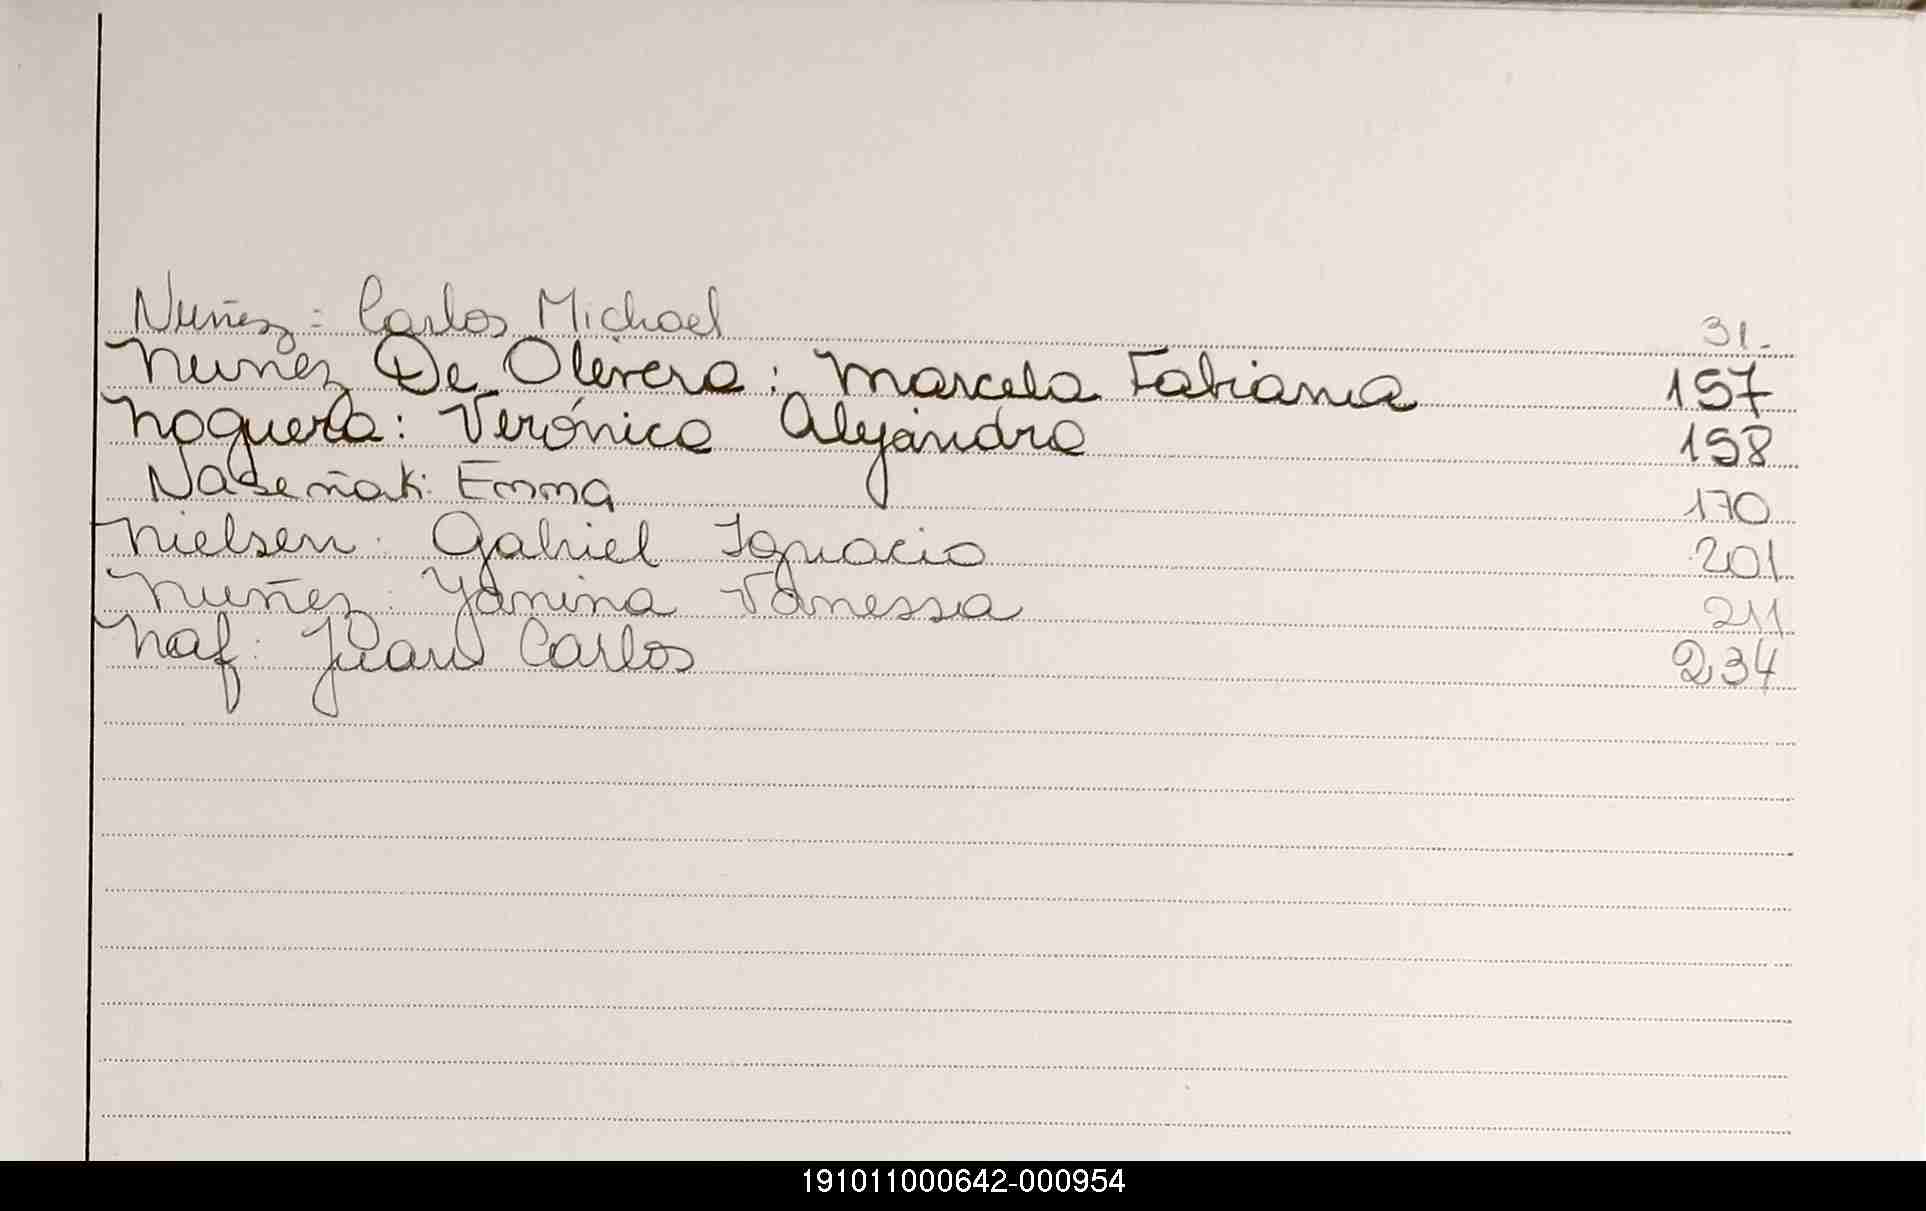 Nuñez: Carlos Michael 31.
Nuñez De Olivera: Marcela Fabiana 157
Noguera: Verónica Alejandra 158
Emma 170
Nielsen: Gabriel Ignacio 201
Nuñez: Yanina Vanessa 211
Naf: Juan Carlos 234
191011000642-000954